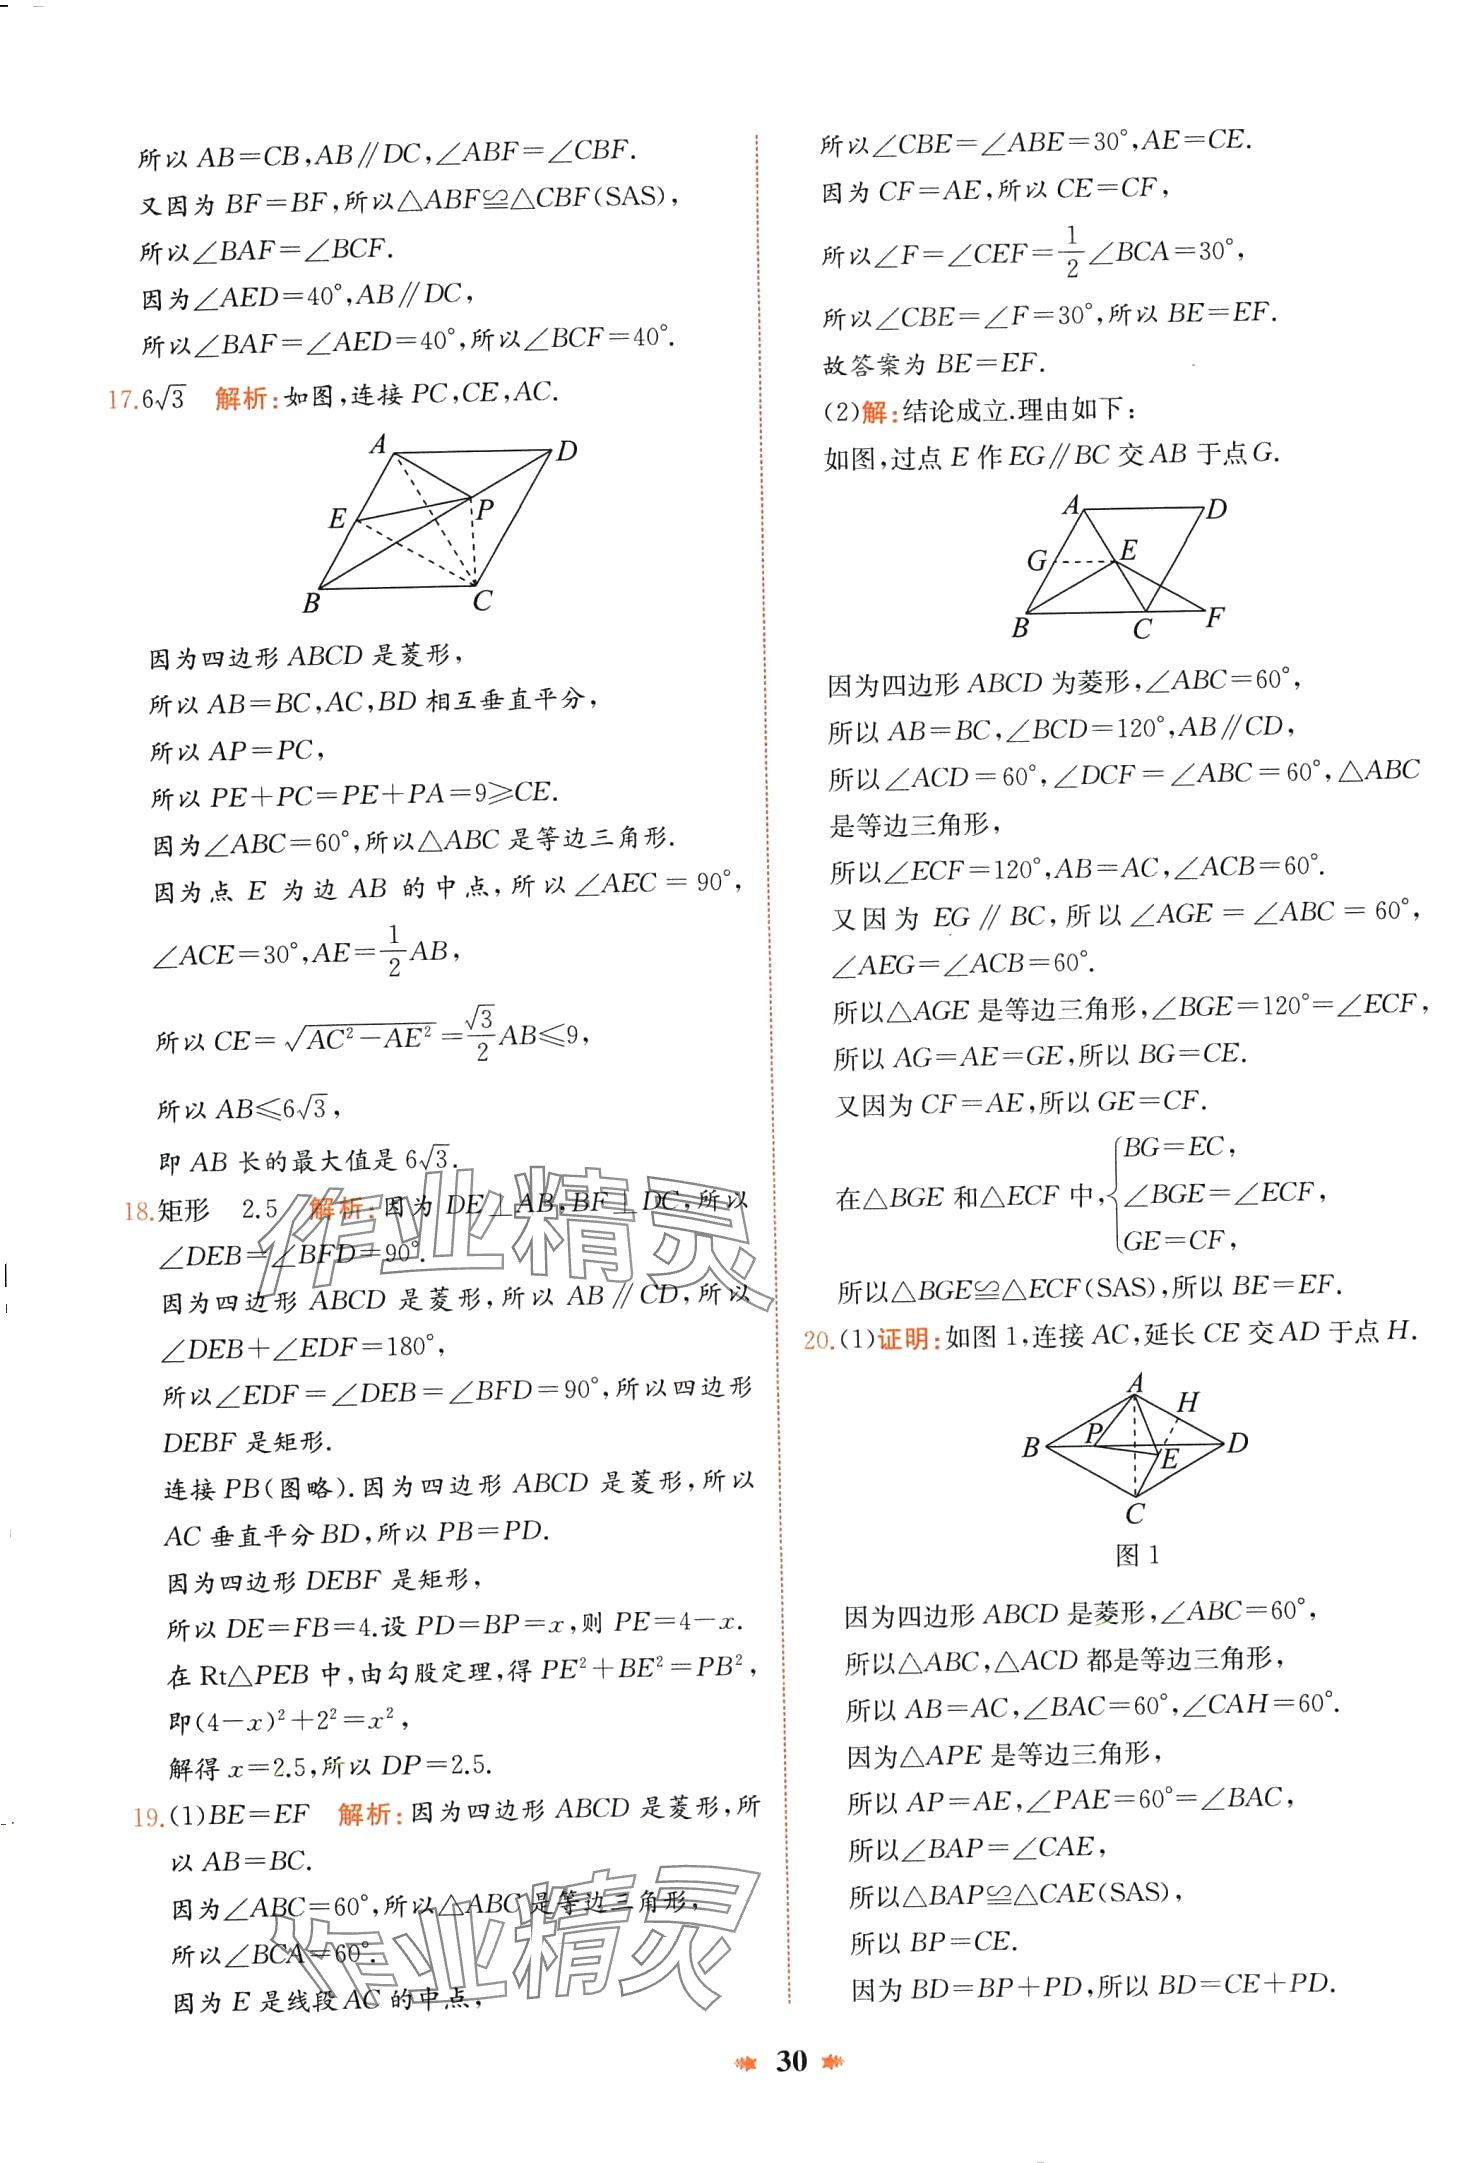 所以 AB=CB,AB∥DC,∠ABF=∠CBF.
又因为 BF=BF,所以△ABF≌△CBF(SAS),
所以∠BAF=∠BCF.
因为∠AED=40°,AB∥DC,
所以∠BAF=∠AED=40°,所以∠BCF=40°.
17.6√3 解析:如图,连接 PC,CE,AC.
A
D
E
P
B
C
因为四边形 ABCD 是菱形,
所以 AB=BC,AC,BD 相互垂直平分,
所以 AP=PC,
所以 PE+PC=PE+PA=9⩾CE.
因为∠ABC=60°,所以△ABC 是等边三角形.
因为点 E 为边 AB 的中点,所以∠AEC=90°,
∠ACE=30°,AE=1/2 AB,
所以 CE=√(AC²−AE²)=√3/2 AB⩽9,
所以 AB⩽6√3,
即 AB 长的最大值是 6√3.
18.矩形 2.5 解析:因为 DE⊥AB,BF⊥DC,所以
∠DEB=∠BFD=90°.
因为四边形 ABCD 是菱形,所以 AB∥CD,所以
∠DEB+∠EDF=180°,
所以∠EDF=∠DEB=∠BFD=90°,所以四边形
DEBF 是矩形.
连接 PB(图略).因为四边形 ABCD 是菱形,所以
AC 垂直平分 BD,所以 PB=PD.
因为四边形 DEBF 是矩形,
所以 DE=FB=4.设 PD=BP=x,则 PE=4−x.
在 Rt△PEB 中,由勾股定理,得 PE²+BE²=PB²,
即(4−x)²+2²=x²,
解得 x=2.5,所以 DP=2.5.
19.(1)BE=EF 解析:因为四边形 ABCD 是菱形,所
以 AB=BC.
因为∠ABC=60°,所以△ABC 是等边三角形,
所以∠BCA=60°.
因为 E 是线段 AC 的中点,
作业精灵
作业精灵
所以∠CBE=∠ABE=30°,AE=CE.
因为 CF=AE,所以 CE=CF,
所以∠F=∠CEF=1/2∠BCA=30°,
所以∠CBE=∠F=30°,所以 BE=EF.
故答案为 BE=EF.
(2)解:结论成立.理由如下:
如图,过点 E 作 EG∥BC 交 AB 于点 G.
A
D
G
E
B
C
F
因为四边形 ABCD 为菱形,∠ABC=60°,
所以 AB=BC,∠BCD=120°,AB∥CD,
所以∠ACD=60°,∠DCF=∠ABC=60°,△ABC
是等边三角形,
所以∠ECF=120°,AB=AC,∠ACB=60°.
又因为 EG∥BC,所以∠AGE=∠ABC=60°,
∠AEG=∠ACB=60°.
所以△AGE 是等边三角形,∠BGE=120°=∠ECF,
所以 AG=AE=GE,所以 BG=CE.
又因为 CF=AE,所以 GE=CF.
BG=EC,
在△BGE 和△ECF 中,{∠BGE=∠ECF,
GE=CF,
所以△BGE≌△ECF(SAS),所以 BE=EF.
20.(1)证明:如图 1,连接 AC,延长 CE 交 AD 于点 H.
A
H
B
P
D
E
C
图 1
因为四边形 ABCD 是菱形,∠ABC=60°,
所以△ABC,△ACD 都是等边三角形,
所以 AB=AC,∠BAC=60°,∠CAH=60°.
因为△APE 是等边三角形,
所以 AP=AE,∠PAE=60°=∠BAC,
所以∠BAP=∠CAE,
所以△BAP≌△CAE(SAS),
所以 BP=CE.
因为 BD=BP+PD,所以 BD=CE+PD.
30